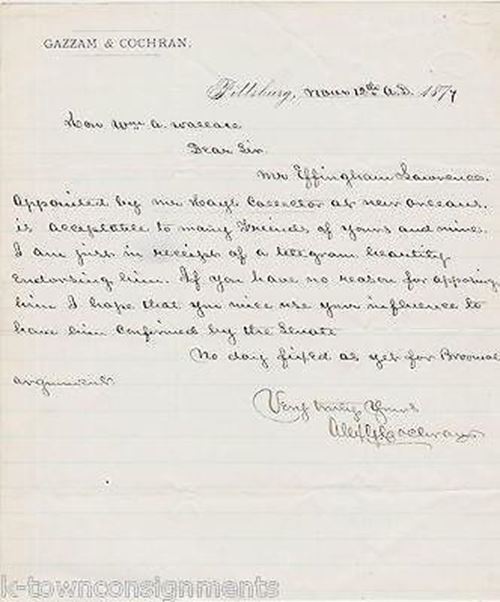 GAZZAM & COCHRAN.
Pittsburg, Nov 12th A.D. 1877
Hon Wm A. Wallace
Dear Sir.
Mr Effingham Lawrence.
Appointed by Mr Hays Collector at New Orleans.
is acceptable to many Friends of yours and mine.
I am just in receipt of a telegram heartily
endorsing him. If you have no reason for opposing
him I hope that you will use your influence to
have him confirmed by the Senate
No day fixed as yet for
argument.
Very truly Yours
k-townconsignments